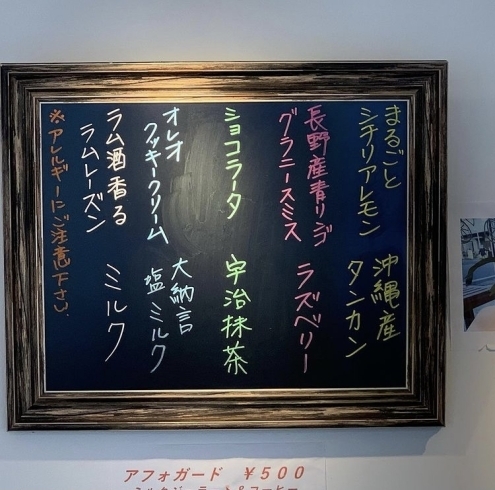 まるごと
シチリアレモン
沖縄産
タンカン
長野産青リンゴ
グラニースミス
ラズベリー
ショコラータ
宇治抹茶
オレオ
クッキークリーム
大納言
塩ミルク
ラム酒香る
ラムレーズン
ミルク
※アレルギーにご注意下さい。
アフォガード ¥500